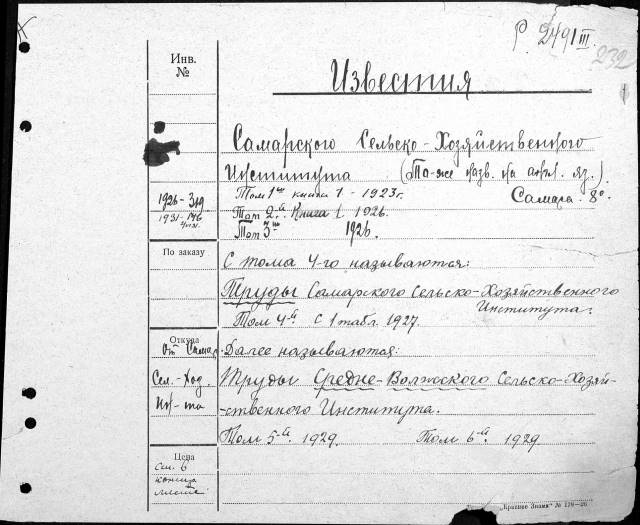 Р. 2491 III.
232
Инв.
№
Известия
Самарского Сельско-Хозяйственного
Института (То-же назв. на англ. яз.)
Том 1ый книга 1 - 1923г. Самара. 8о.
1926-3яд
1931-176
Том 2й. Книга 1. 1926.
Том 3й 1926.
По заказу
С тома 4-го называются:
Труды Самарского Сельско-Хозяйственного
Института.
Том 4й. С 1 табл. 1927.
Откуда
От Самар.
Далее называются:
Сел.-Хоз.
Труды Средне-Волжского Сельско-Хозяй-
Ин-та
-ственного Института.
Том 5-й 1929. Том 6-й. 1929
Цена
См. в
конце
листа
"Красное Знамя" № 178-26